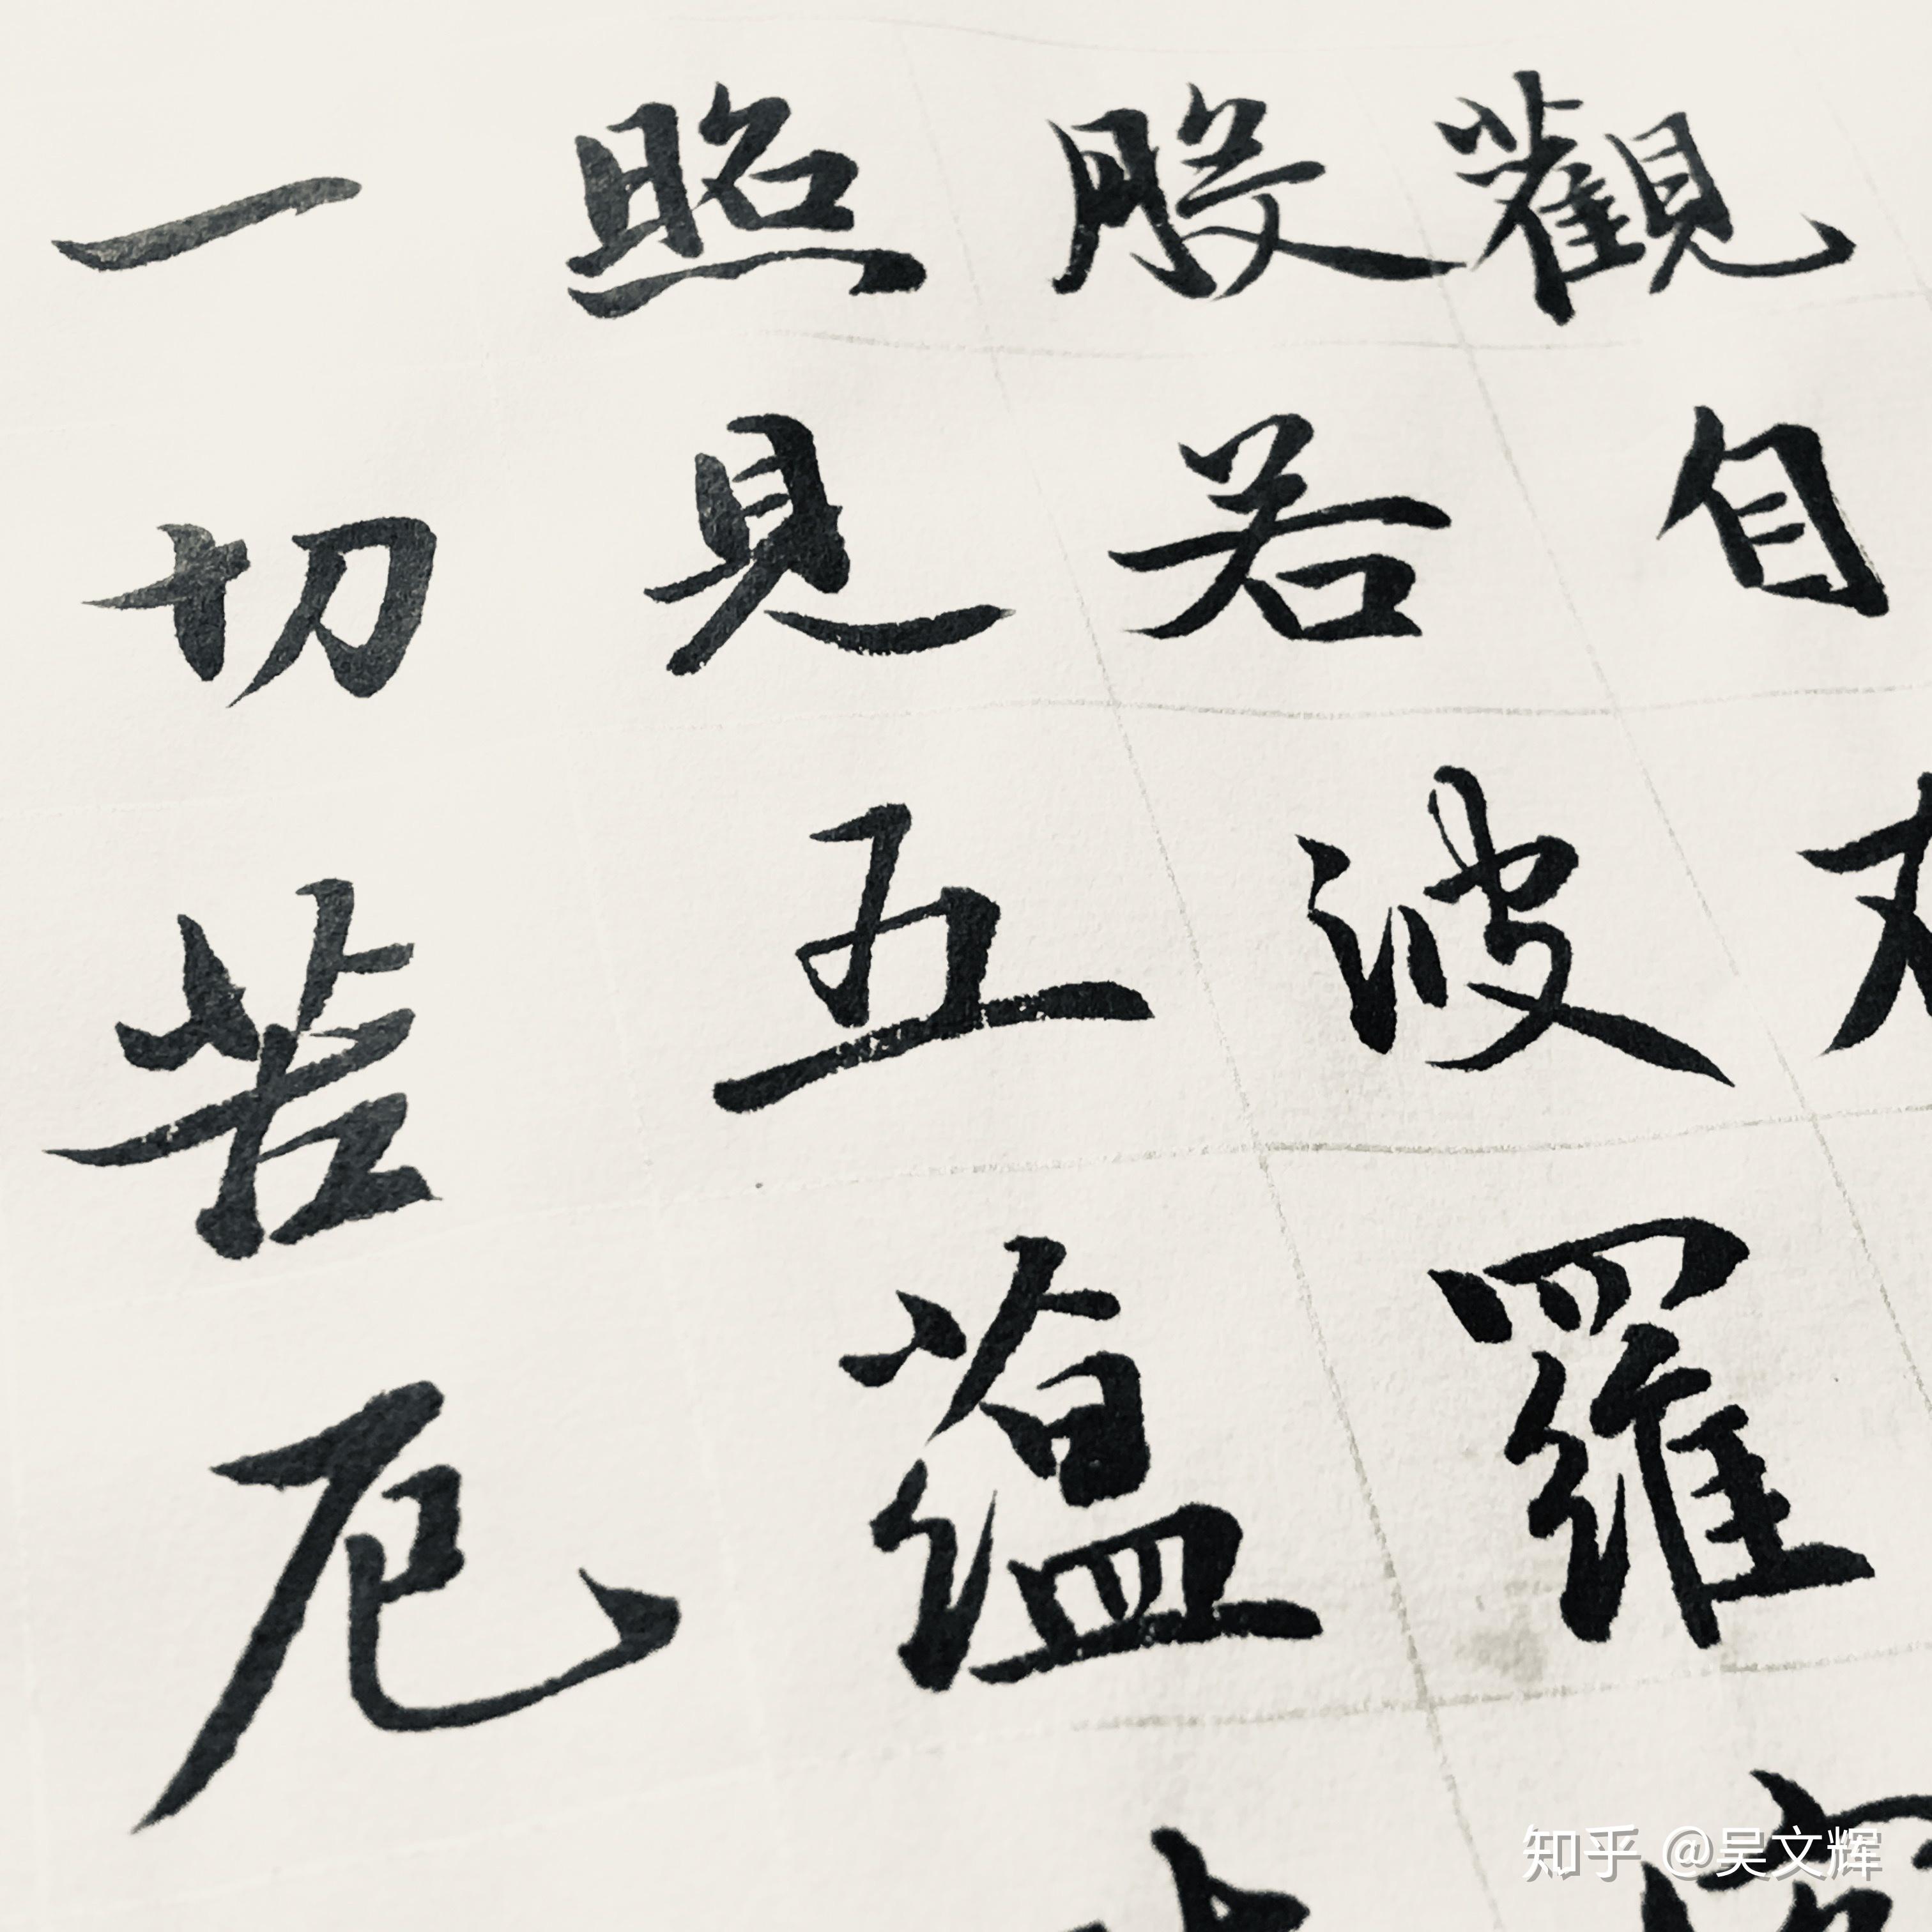 觀自
般若波羅
照見五蘊
一切苦厄
知乎 @吴文辉